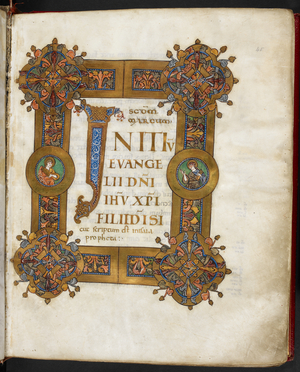 SCD̄M
MARCUM
INITIV
EVANGE
LII DN̄I
IHV̄ XP̄I
FILII DĪ SI
cut scriptum est in isaia
propheta: